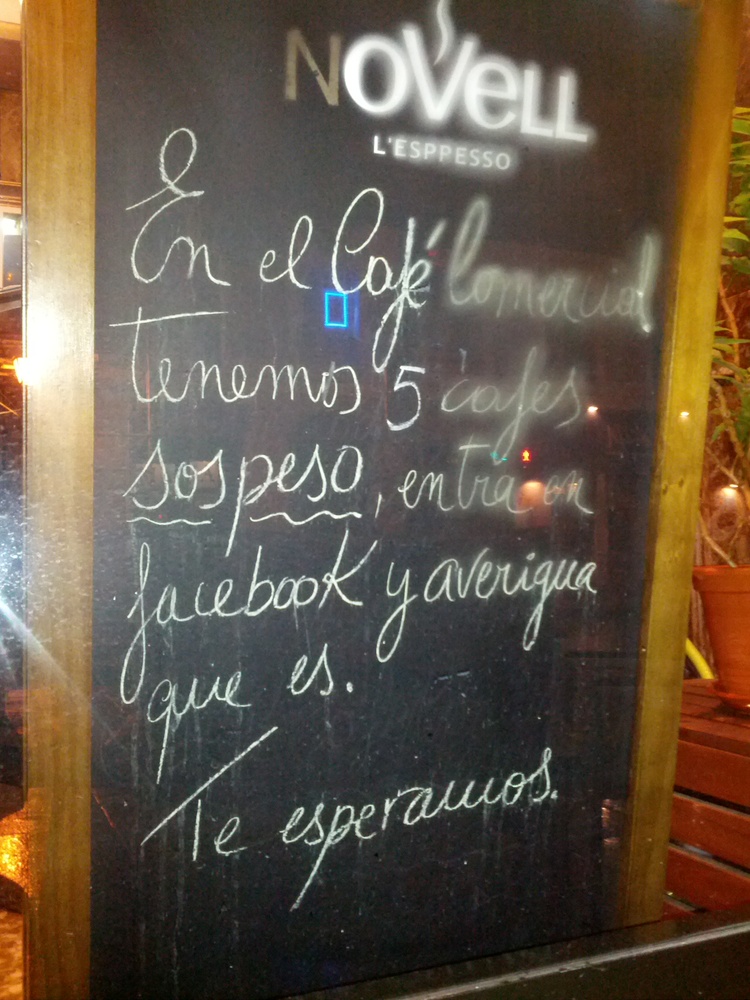 NOVELL
L'ESPPESSO
En el Café Comercial
tenemos 5 cafes
sospeso, entra en
facebook y averigua
que es.
Te esperamos.